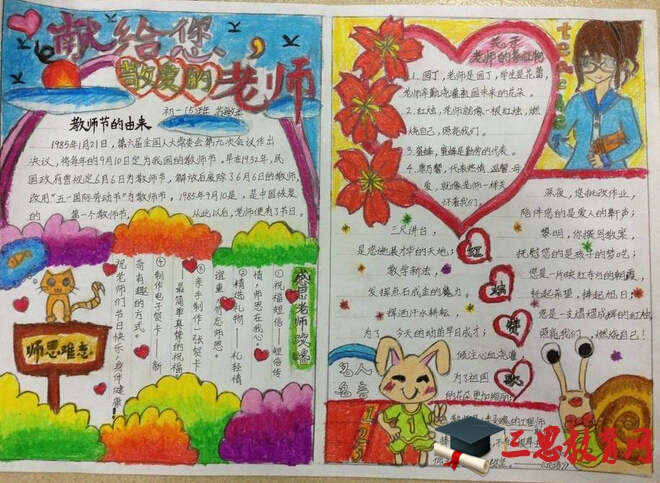 献给您，
敬爱的老师
初一(5)班
教师节的由来
1985年1月21日，第六届全国人大常委会第九次会议作出
决议，将每年的9月10日定为我国的教师节。早在1932年，民
国政府曾规定6月6日为教师节，解放后废除了6月6日的教师节，
改用"五一国际劳动节"为教师节。1985年9月10是，是中国恢复
的 第一个教师节， 从此以后，老师便有了节日。
感恩老师
①祝福短信 短信传
情，师恩在我心。
②精选礼物 礼轻情
谊重，
③亲手制作一张贺卡
最简单真挚的祝福
④制作电子贺卡 新
奇有趣的方式。
祝老师们节日快乐，身体健康！
师恩难忘
关于
老师的象征物
teacher
1.园丁，老师是园丁，学生是花蕾，
老师辛勤浇灌我国未来的花朵。
2.红烛，老师就像一根红烛，燃
烧自己，照亮我们。
3.蜜蜂，蜜蜂是勤劳的代表。
4.康乃馨，代表热情、温馨、母
爱，就像老师一样关
怀着我们。
红烛赞歌
三尺讲台，
是您施展才华的天地；
教学新法，
发挥点石成金的魔力。
挥洒汗水耕耘，
为了 今天的幼苗早日成才；
倾注心血浇灌，
为了祖国
的花朵更加绚丽；
深夜，您批改作业，
陪伴您的是爱人的鼾声；
黎明，你撰写教案，
抚慰您的是孩子的梦呓；
您是一片映红半边的朝霞
托起希望，捧起旭日；
您是一支熠熠成辉的红烛
照亮我们，燃烧自己！
名人
名言
1
2
3
三思教育网